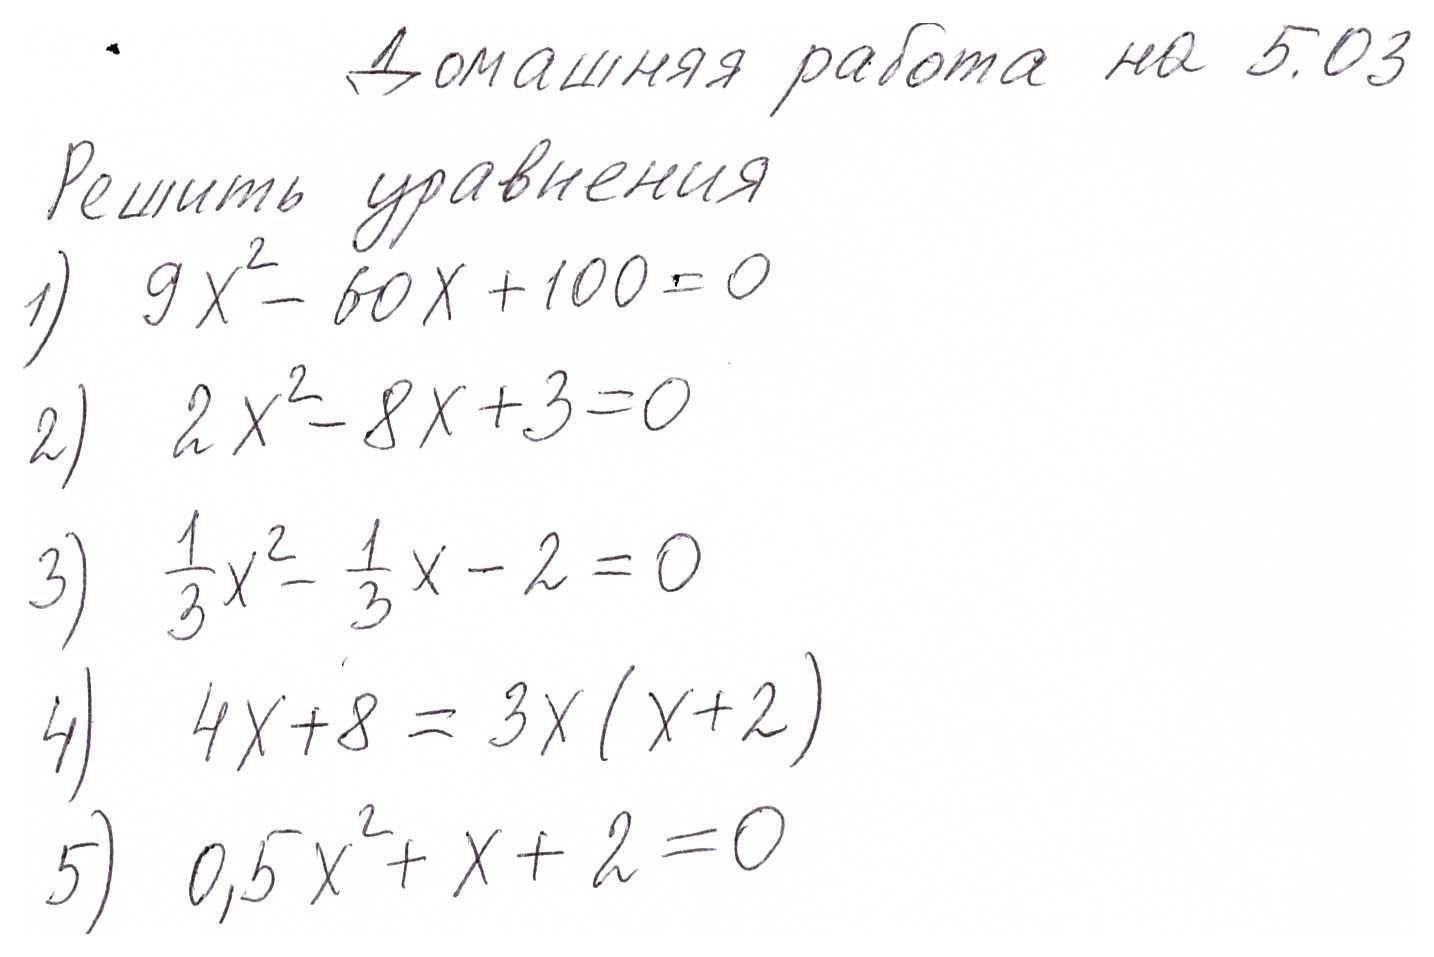 Домашняя работа на 5.03
Решить уравнения
1) 9x² - 60x + 100 = 0
2) 2x² - 8x + 3 = 0
3) 1/3 x² - 1/3 x - 2 = 0
4) 4x + 8 = 3x(x + 2)
5) 0,5x² + x + 2 = 0